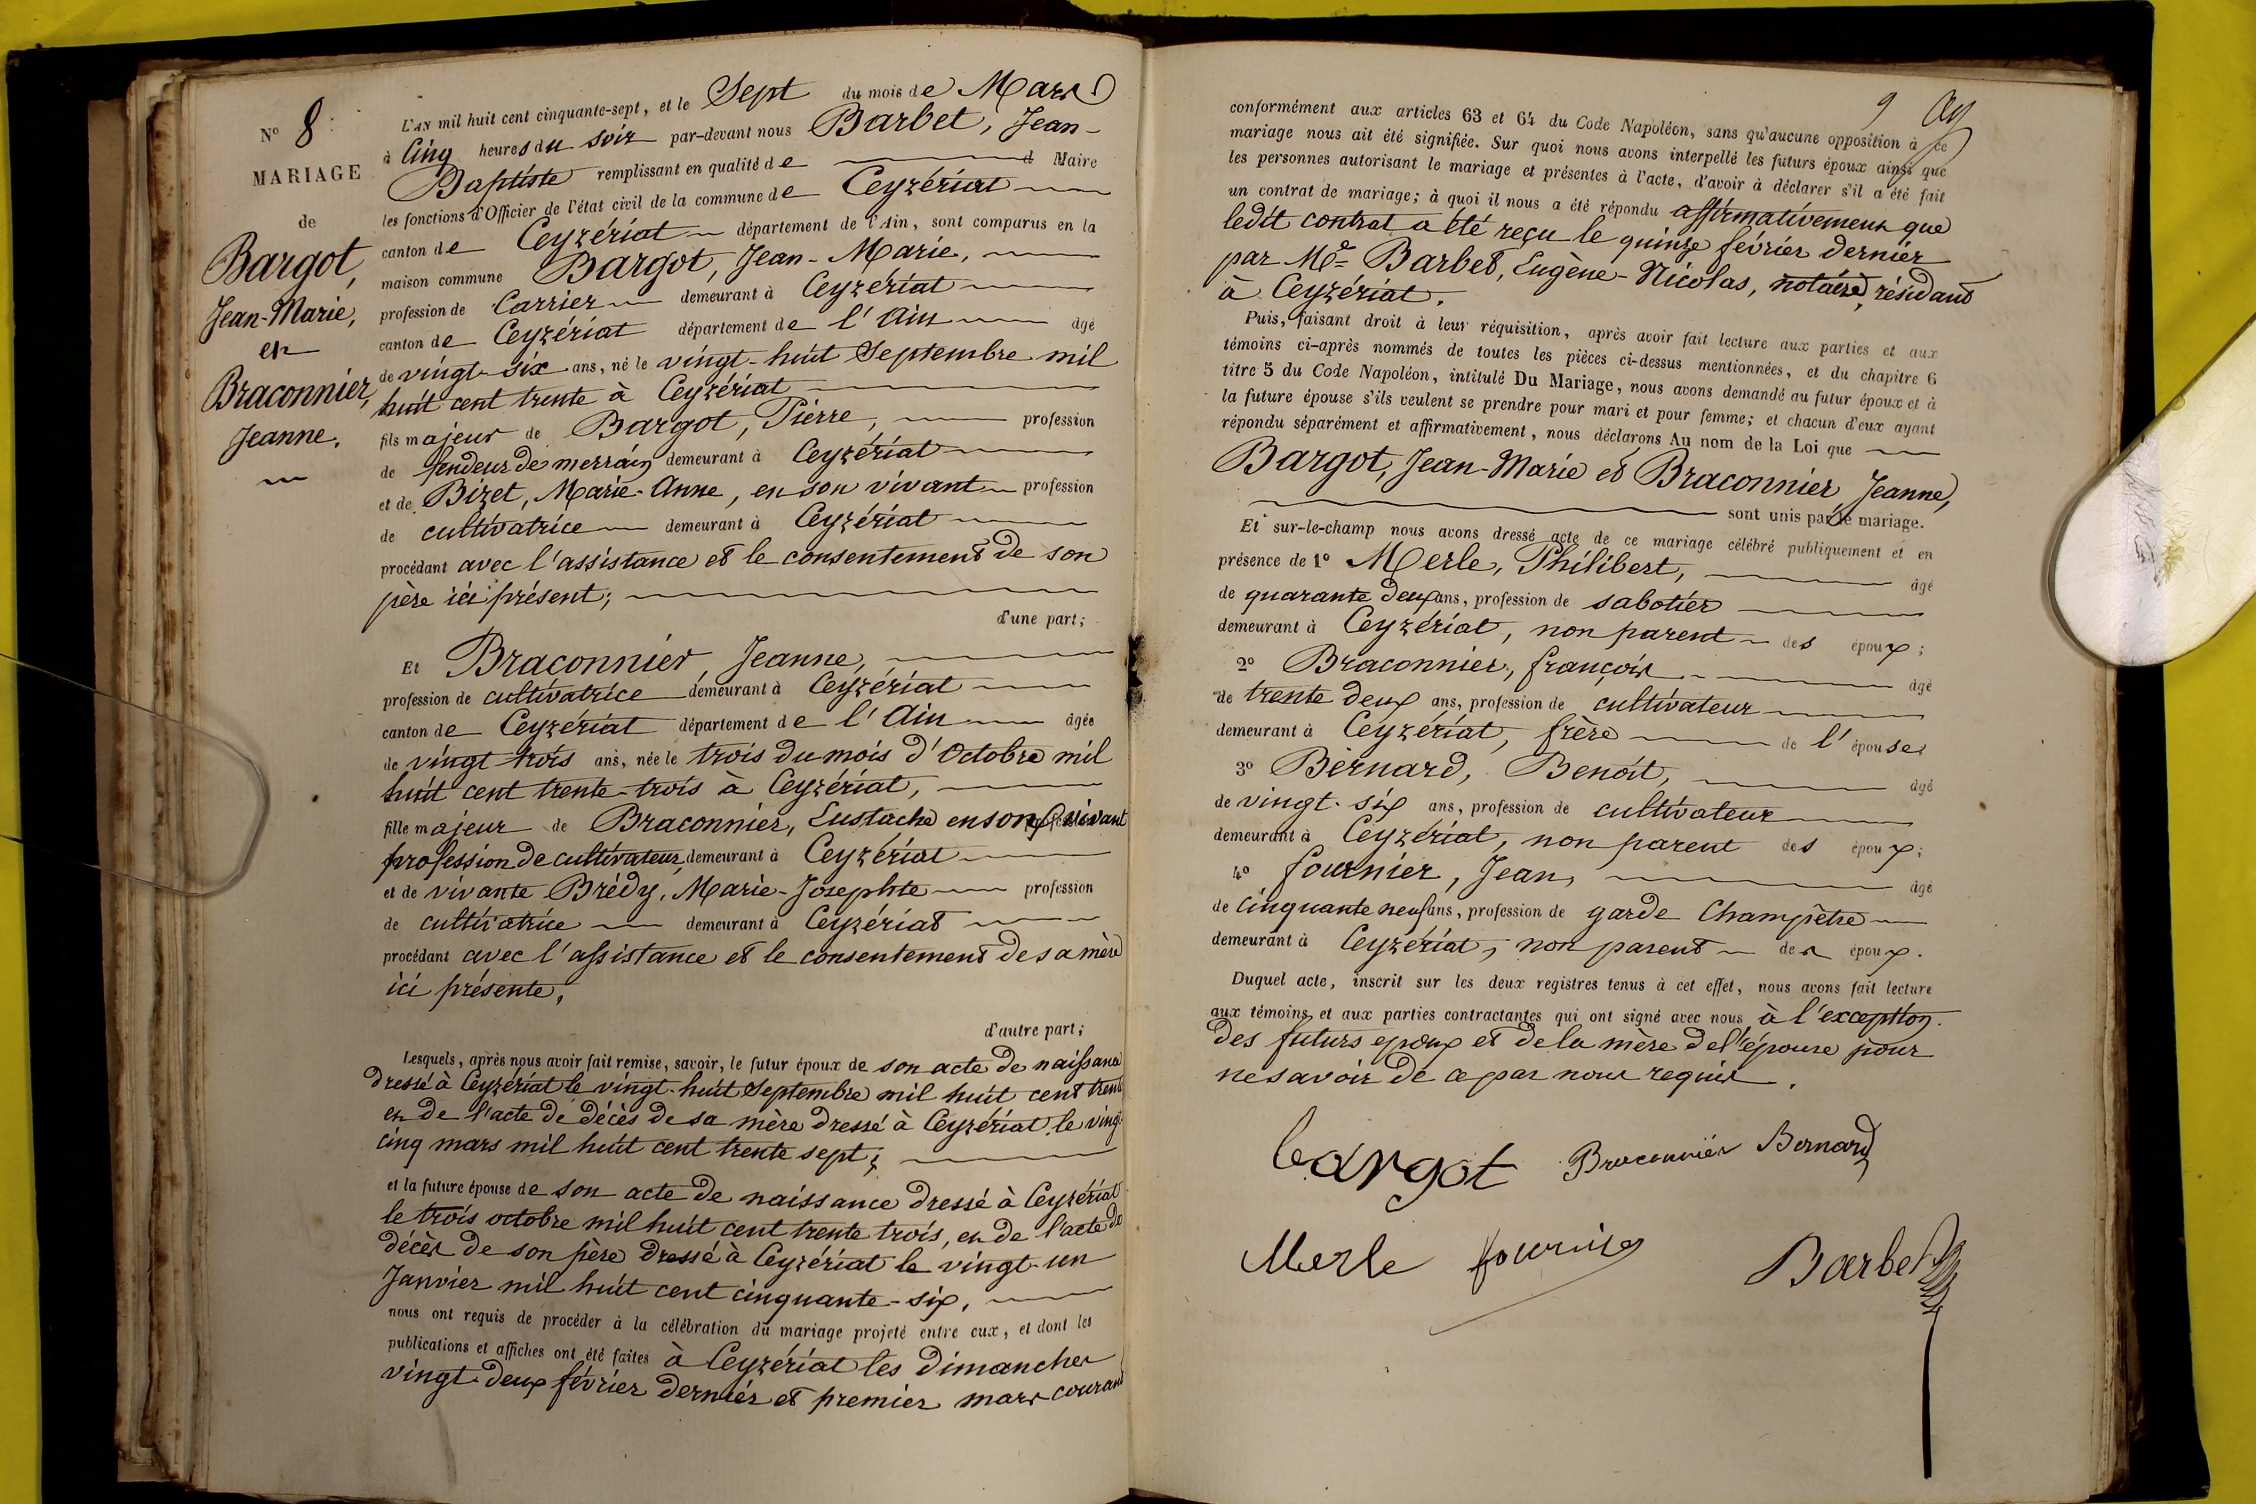 N° 8
MARIAGE
de
Bargot,
Jean-Marie,
et
Braconnier,
Jeanne.
L'AN mil huit cent cinquante-sept, et le Sept du mois de Mars
à Cinq heures du soir par-devant nous Barbet, Jean-
Baptiste remplissant en qualité de Maire
les fonctions d'Officier de l'état civil de la commune de Ceyzériat
canton de Ceyzériat département de l'Ain, sont comparus en la
maison commune Bargot, Jean-Marie,
profession de Carrier demeurant à Ceyzériat
canton de Ceyzériat département de l'Ain âgé
de vingt-six ans, né le vingt-huit Septembre mil
huit cent trente à Ceyzériat
fils majeur de Bargot, Pierre, profession
de fendeur de merrain demeurant à Ceyzériat
et de Bizet, Marie-Anne, en son vivant profession
de cultivatrice demeurant à Ceyzériat
procédant avec l'assistance et le consentement de son
père ici présent;
d'une part;
Et Braconnier, Jeanne,
profession de cultivatrice demeurant à Ceyzériat
canton de Ceyzériat département de l'Ain âgée
de vingt trois ans, née le trois du mois d'Octobre mil
huit cent trente-trois à Ceyzériat,
fille majeur de Braconnier, Eustache en son vivant
profession de cultivateur, demeurant à Ceyzériat
et de vivante Brédy, Marie-Josephte profession
de cultivatrice demeurant à Ceyzériat
procédant avec l'assistance et le consentement de sa mère
ici présente,
d'autre part;
Lesquels, après nous avoir fait remise, savoir, le futur époux de son acte de naissance
dressé à Ceyzériat le vingt-huit Septembre mil huit cent trente
et de l'acte de décès de sa mère dressé à Ceyzériat le vingt-
cinq mars mil huit cent trente sept;
et la future épouse de son acte de naissance dressé à Ceyzériat
le trois octobre mil huit cent trente trois, et de l'acte de
décès de son père dressé à Ceyzériat le vingt-un
Janvier mil huit cent cinquante-six,
nous ont requis de procéder à la célébration du mariage projeté entre eux, et dont les
publications et affiches ont été faites à Ceyzériat les dimanches
vingt-deux février dernier et premier mars courant
9
conformément aux articles 63 et 64 du Code Napoléon, sans qu'aucune opposition à ce
mariage nous ait été signifiée. Sur quoi nous avons interpellé les futurs époux ainsi que
les personnes autorisant le mariage et présentes à l'acte, d'avoir à déclarer s'il a été fait
un contrat de mariage; à quoi il nous a été répondu affirmativement que
ledit contrat a été reçu le quinze février dernier
par Me Barbet, Eugène-Nicolas, notaire, résidant
à Ceyzériat.
Puis, faisant droit à leur réquisition, après avoir fait lecture aux parties et aux
témoins ci-après nommés de toutes les pièces ci-dessus mentionnées, et du chapitre 6
titre 5 du Code Napoléon, intitulé Du Mariage, nous avons demandé au futur époux et à
la future épouse s'ils veulent se prendre pour mari et pour femme; et chacun d'eux ayant
répondu séparément et affirmativement, nous déclarons Au nom de la Loi que
Bargot, Jean-Marie et Braconnier, Jeanne,
sont unis par le mariage.
Et sur-le-champ nous avons dressé acte de ce mariage célébré publiquement et en
présence de 1° Merle, Philibert, âgé
de quarante deux ans, profession de sabotier
demeurant à Ceyzériat, non parent des époux;
2° Braconnier, françois âgé
de trente deux ans, profession de cultivateur
demeurant à Ceyzériat, frère de l'épouse;
3° Bernard, Benoit, âgé
de vingt-six ans, profession de cultivateur
demeurant à Ceyzériat, non parent des époux;
4° fournier, Jean, âgé
de cinquante neuf ans, profession de garde Champêtre
demeurant à Ceyzériat, non parent des époux.
Duquel acte, inscrit sur les deux registres tenus à cet effet, nous avons fait lecture
aux témoins et aux parties contractantes qui ont signé avec nous à l'exception
des futurs epoux et de la mère de l'épouse pour
ne savoir de ce par nous requis.
bargot Braconnier Bernard
Merle fournier
Barbet